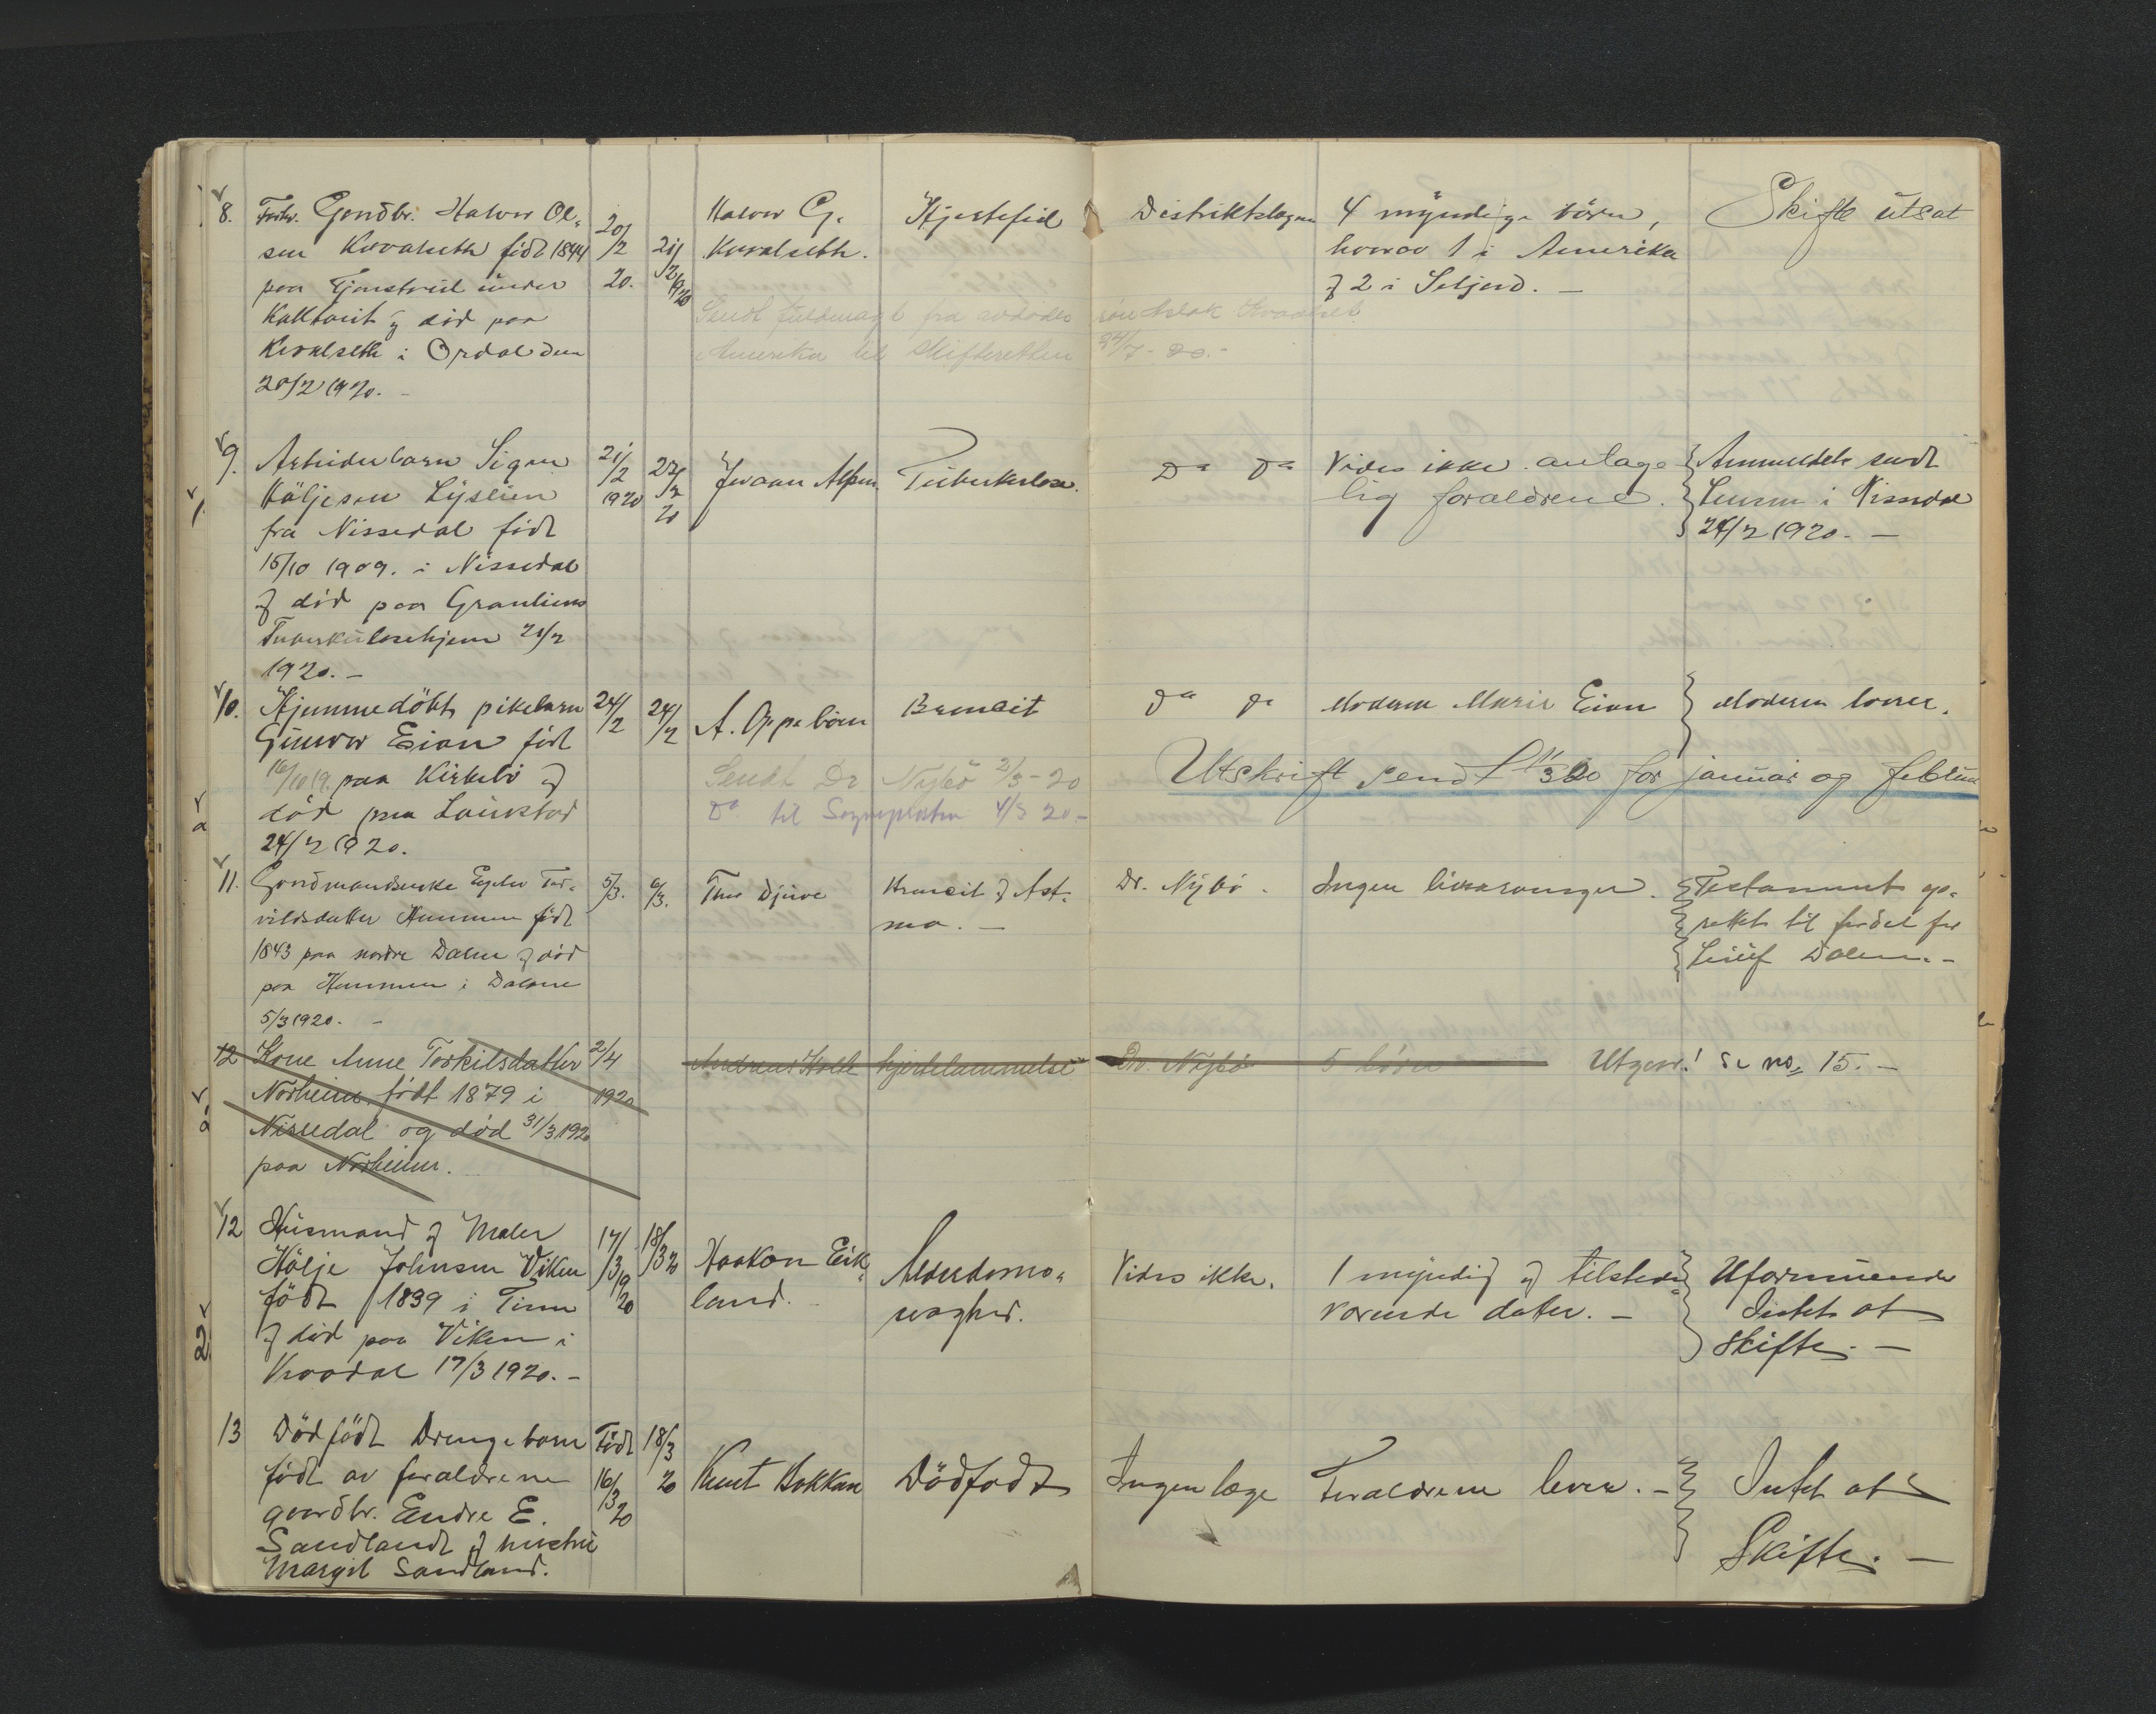 8. Forhv. Gaardbr. Halvor Ol-
sen Kvaalseth födt 1844
paa Tjønstveit under
og död paa
Kvaalseth i Ordal den
20/2 1920. -
20/2 20.
21/2 1920
Halvor G.
Kvaalseth.
Hjertefeil
Distriktslægen
4 myndige börn,
hvorav 1 i Amerika
og 2 i Seljord. -
Skifte utsat
Sendt fuldmagt fra avdödes sön Aslak Kvaalset
Amerika til skifteretten 24/7 - 20. -
9. Arbeiderbarn Signe
Höljesen Lyslien
fra Nissedal födt
15/10 1909. i Nissedal
og död paa Granliens
Tuberkulosehjem 21/2
1920. -
21/2 1920
22/2 20
Tuberkulose.
Do Do
Vides ikke. antage-
lig foraldrene.
Anmeldele sendt
Lensm i Nissedal
24/2 1920. -
10. Hjemmedöbt pikebarn
Gunvor Eian födt
paa Kirkebö og
död paa
24/2 1920.
24/2
24/2
A. Oppeböen
Do Do
Moderen Marie Eian
Moderen lever.
Sendt Dr Nybö 2/3 - 20
Do til Sogneprsten 4/3 20 -
Utskrift sendt 11/3 20 for januar og februar
11. Gaardmandsenke
Hemmen födt
1843 paa nordre Dalen og död
paa Hemmen i Dalane
5/3 1920. -
5/3.
6/3.
Thor Djuve
og Ast-
ma. -
Dr. Nybö.
Ingen livsarvinger.
Testament op-
rettet til fordel for
Leiuf Dalen. -
12 Kone Anne Torkilsdatter
Norheim. födt 1879 i
Nissedal og död 31/3 1920
paa Norheim.
2/4
1920
Andreas Holte
hjertelammelse
Dr. Nybö
5 börn
Utgaar! Se no. 15. -
12 Husmand og Maler
Hölje Johnsen Viken
födt 1839 i Tinn
og död paa Viken i
Kvaadal 17/3 1920. -
17/3 1920
18/3 20
Haakon Eik-
land.
Alderdoms-
svaghed.
Vides ikke.
1 myndig og tilstede-
værende datter. -
Uformuende
Intet at
skifte. -
13 Dödfödt Drengebarn
födt av foraldrene
gaardbr. Endre E.
Sandland og hustru
Margit Sandland.
Födt
16/3 20
18/3 20
Knut Bakkan
Dödfödt
Ingen læge
Foraldrene lever. -
Intet at
Skifte. -